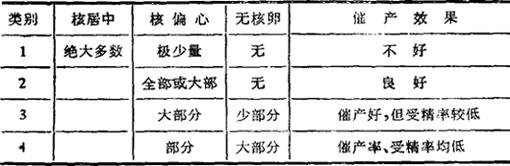 类别 核居中 核偏心 无核卵 催产效果
1 绝大多数 极少量 无 不好
2 全部或大部 无 良好
3 大部分 少部分 催产好，但受精率较低
4 部分 大部分 催产率、受精率均低